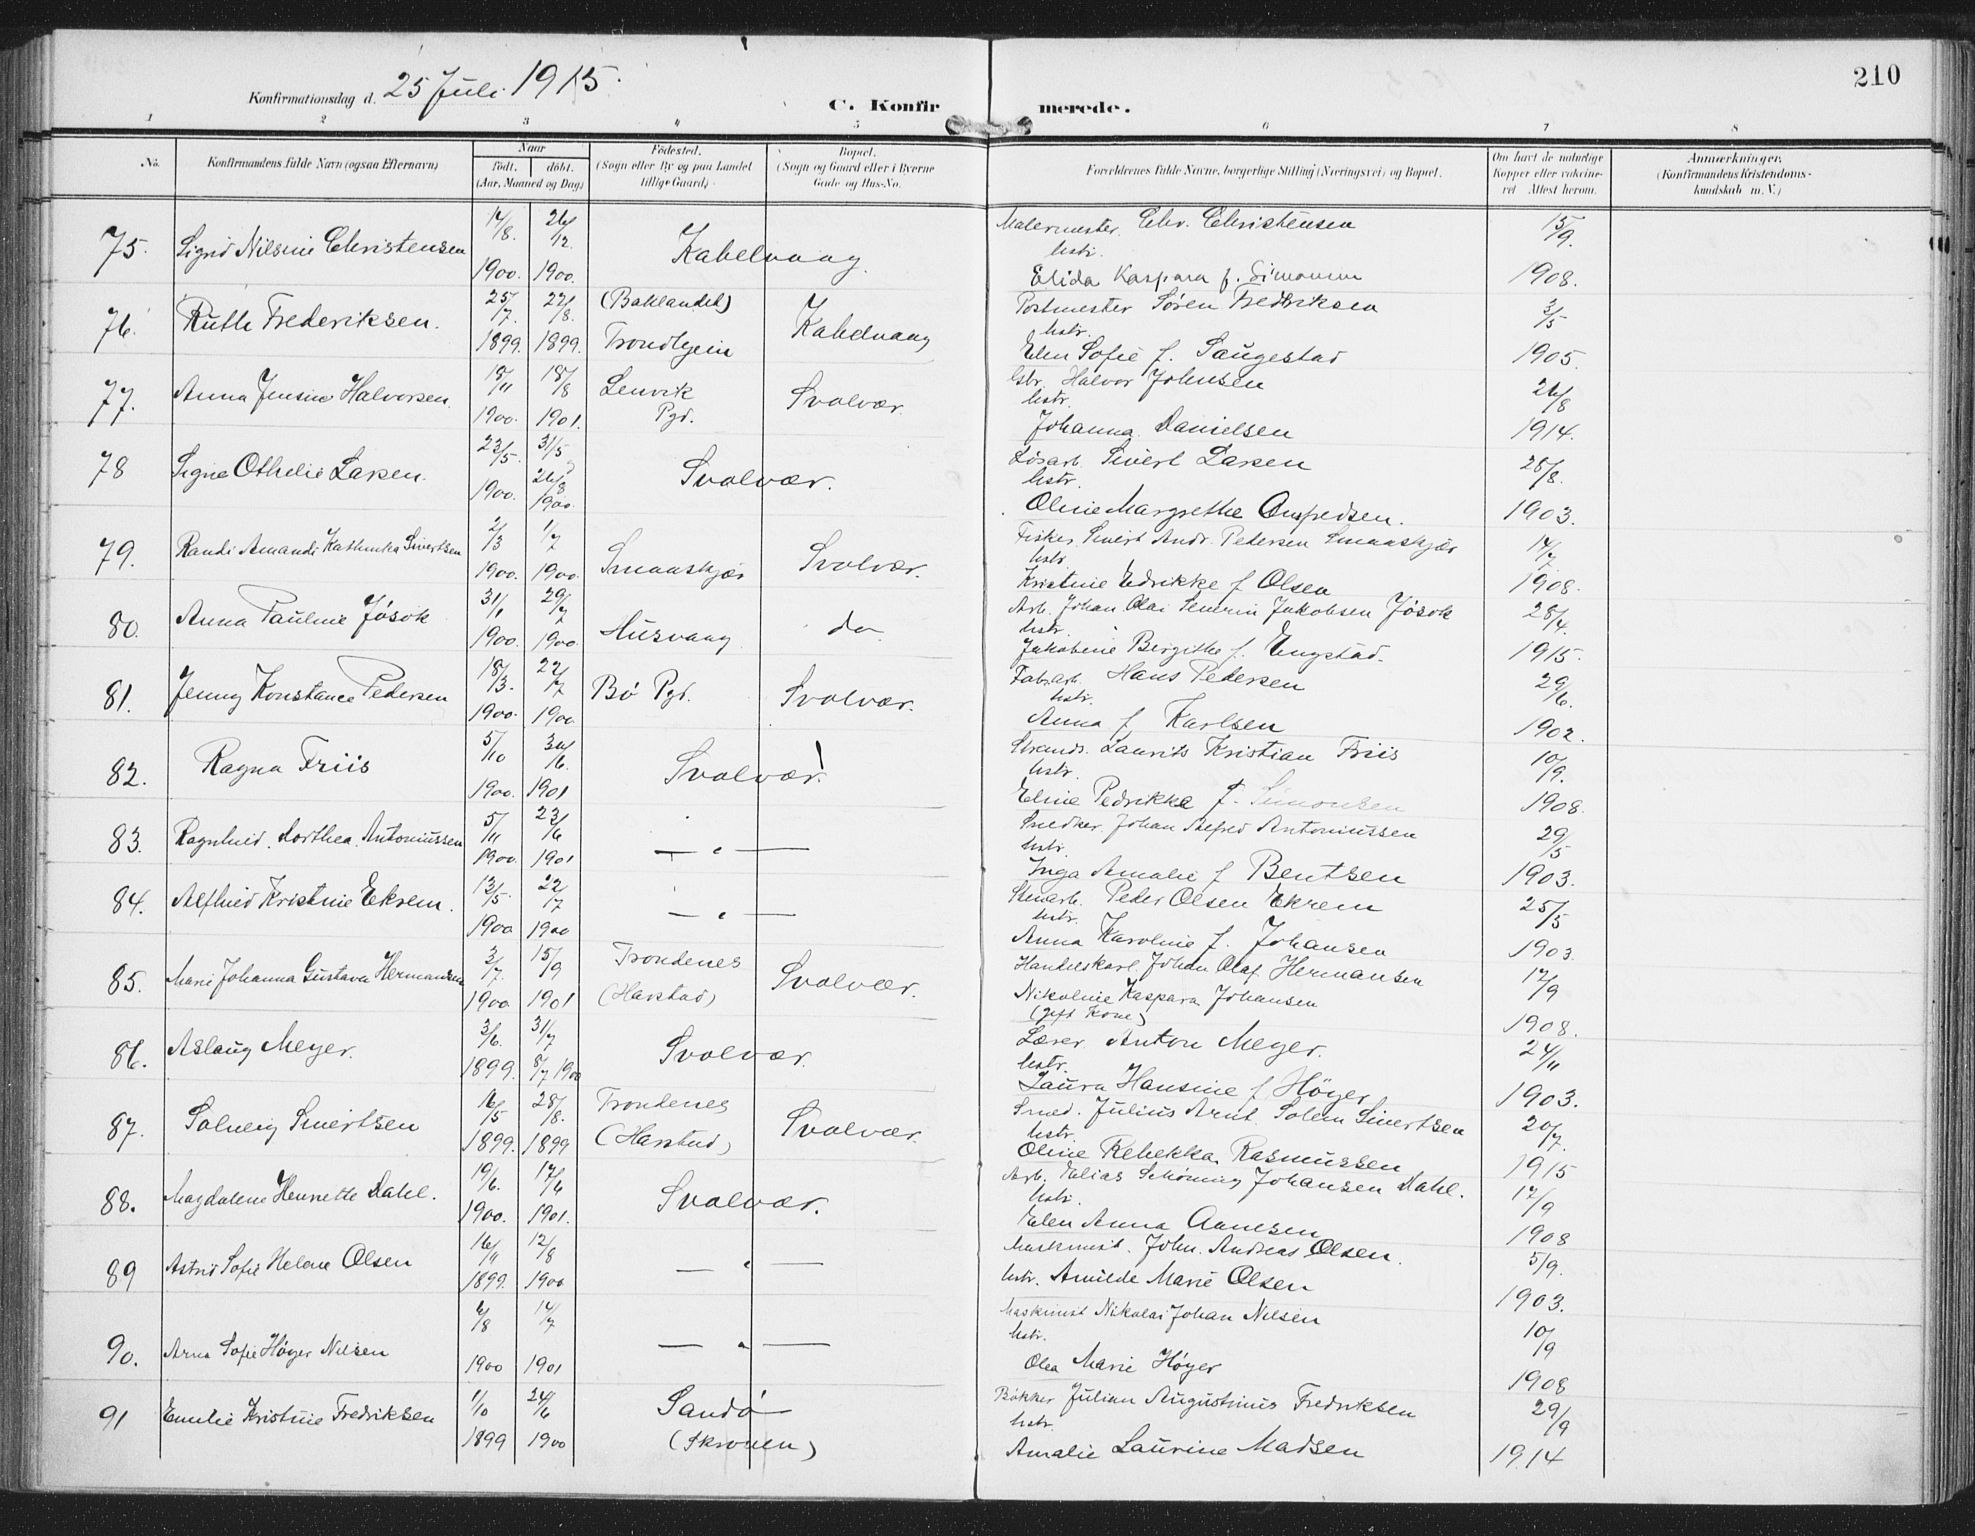 210
Konfirmationsdag d. 25 Juli 1915.
C. Konfirmerede.
1 2 3 4 5 6 7 8
No. Konfirmandens fulde Navn (ogsaa Efternavn) Naar født. døbt. (Aar, Maaned og Dag) Fødested. (Sogn eller By og paa Landet tillige Gaard). Bopæl. (Sogn og Gaard eller i Byerne Gade og Hus-No. Forældrenes fulde Navne, borgerlige Stilling (Næringsvei) og Bopæl. Om havt de naturlige Kopper eller vakcineret Attest herom. Anmærkninger. (Konfirmandens Kristendomskundskab m. V.)
75. Sigrid Nilsine Christensen 14/8. 1900. 26/12. 1900. Kabelvaag. Malermester Chr. Christensen 15/9.
hstr.
Elida Kaspara f. Simonsen 1908.
76. Ruth Frederiksen. 25/7. 1899. 22/8. 1899. (Baklandet) Trondhjem Kabelvaag Postmester Søren Fredriksen 3/5
hstr.
Elen Sofie f. Saugestad 1905.
77. Anna Jensine Halvorsen. 18/11 1900. 18/8 1901. Lenvik Pgd. Svolvær. Gbr. Halvor Johnsen 26/8
hstr.
Johanna Danielsen 1914.
78 Signe Othelie Larsen. 23/5. 1900. 31/5 26/8 1900. Svolvær. Løsarb. Sivert Larsen 28/8.
hstr.
Oline Margrethe 1903.
79. Randi Amandi Kathinka Sivertsen 2/3 1900. 1/7 1900. Smaaskjær Svolvær. Fisker Sivert Andr. Pedersen Smaaskjær 14/7
hstr.
Kristine Edrikke f Olsen 1908.
80. Anna Pauline Jøsok 31/1 1900. 29/7 1900. Husvaag do Arb. Johan Olai Severin Jakobsen Jøsok 28/4.
hstr.
Jakobine Bergithe f. Engstad. 1915.
81. Jenny Konstance Pedersen 18/3. 1900. 22/7 1900. Bø Pgd. Svolvær. Fabrarb. Hans Pedersen 29/6.
hstr.
Anna f Karlsen 1902.
82. Ragna Friis 5/10 1900. 30/6. 1901 Svolvær! Strands. Laurits Kristian Friis 10/9.
hstr.
Eline Pedrikke f. Simonsen 1908.
83. Ragnhild Dorthea Antoniussen 5/11 1900. 23/6 1901 — " — Snedker Johan Alfred Antoniussen 29/5
hstr.
Inga Amalie f Bentsen 1903.
84. Alfhild Kristine Ekrem. 13/5. 1900 22/7 1900 — " — Stenarb. Peder Olsen Ekrem 25/5
hstr.
Anna Karoline f. Johansen 1903.
85. Marie Johanna Gustava Hermansen 3/7. 1900. 15/9 1901 Trondenes (Harstad) Svolvær. Handelskarl Johan Olaf Hermansen 12/9
Nikoline Kaspara Johansen
(gift Kone) 1908.
86. Aslaug Meyer. 3/6. 1899. 31/7 8/7 1900 Svolvær. Lærer Anton Meyer. 24/11
hstr.
Laura Hansine f Höyer 1903.
87. Solveig Sivertsen 16/5 1899. 28/8. 1899 Trondenes (Harstad) Svolvær. Smed. Julius Arnt Solem Sivertsen 20/7.
hstr.
Oline Rebekka Rasmussen 1915
88. Magdalene Henriette Dahl. 19/6. 1900. 17/6 1901. Svolvær. Arb. Elias Schöning Johansen Dahl. 12/9
hstr.
Elen Anna Aanesen 1908
89 Astrid Sofie Helene Olsen 16/11 1899. 12/8 1900 — " — Maskinist. John. Andreas Olsen. 5/9.
hstr. Amilde Marie Olsen 1903.
90. Arna Sofie Høyer Nilsen 6/8 1900 14/7 1901 — " — Maskinist Nikolai Johan Nilsen 10/9
hstr.
Olea Marie Höyer 1908
91 Emilie Kristine Fredriksen 1/10 1899 24/6 1900 Sandö (Skrouen) Bøkker Julian Augustinus Fredriksen 29/9
hstr.
Amalie Laurine Madsen 1914